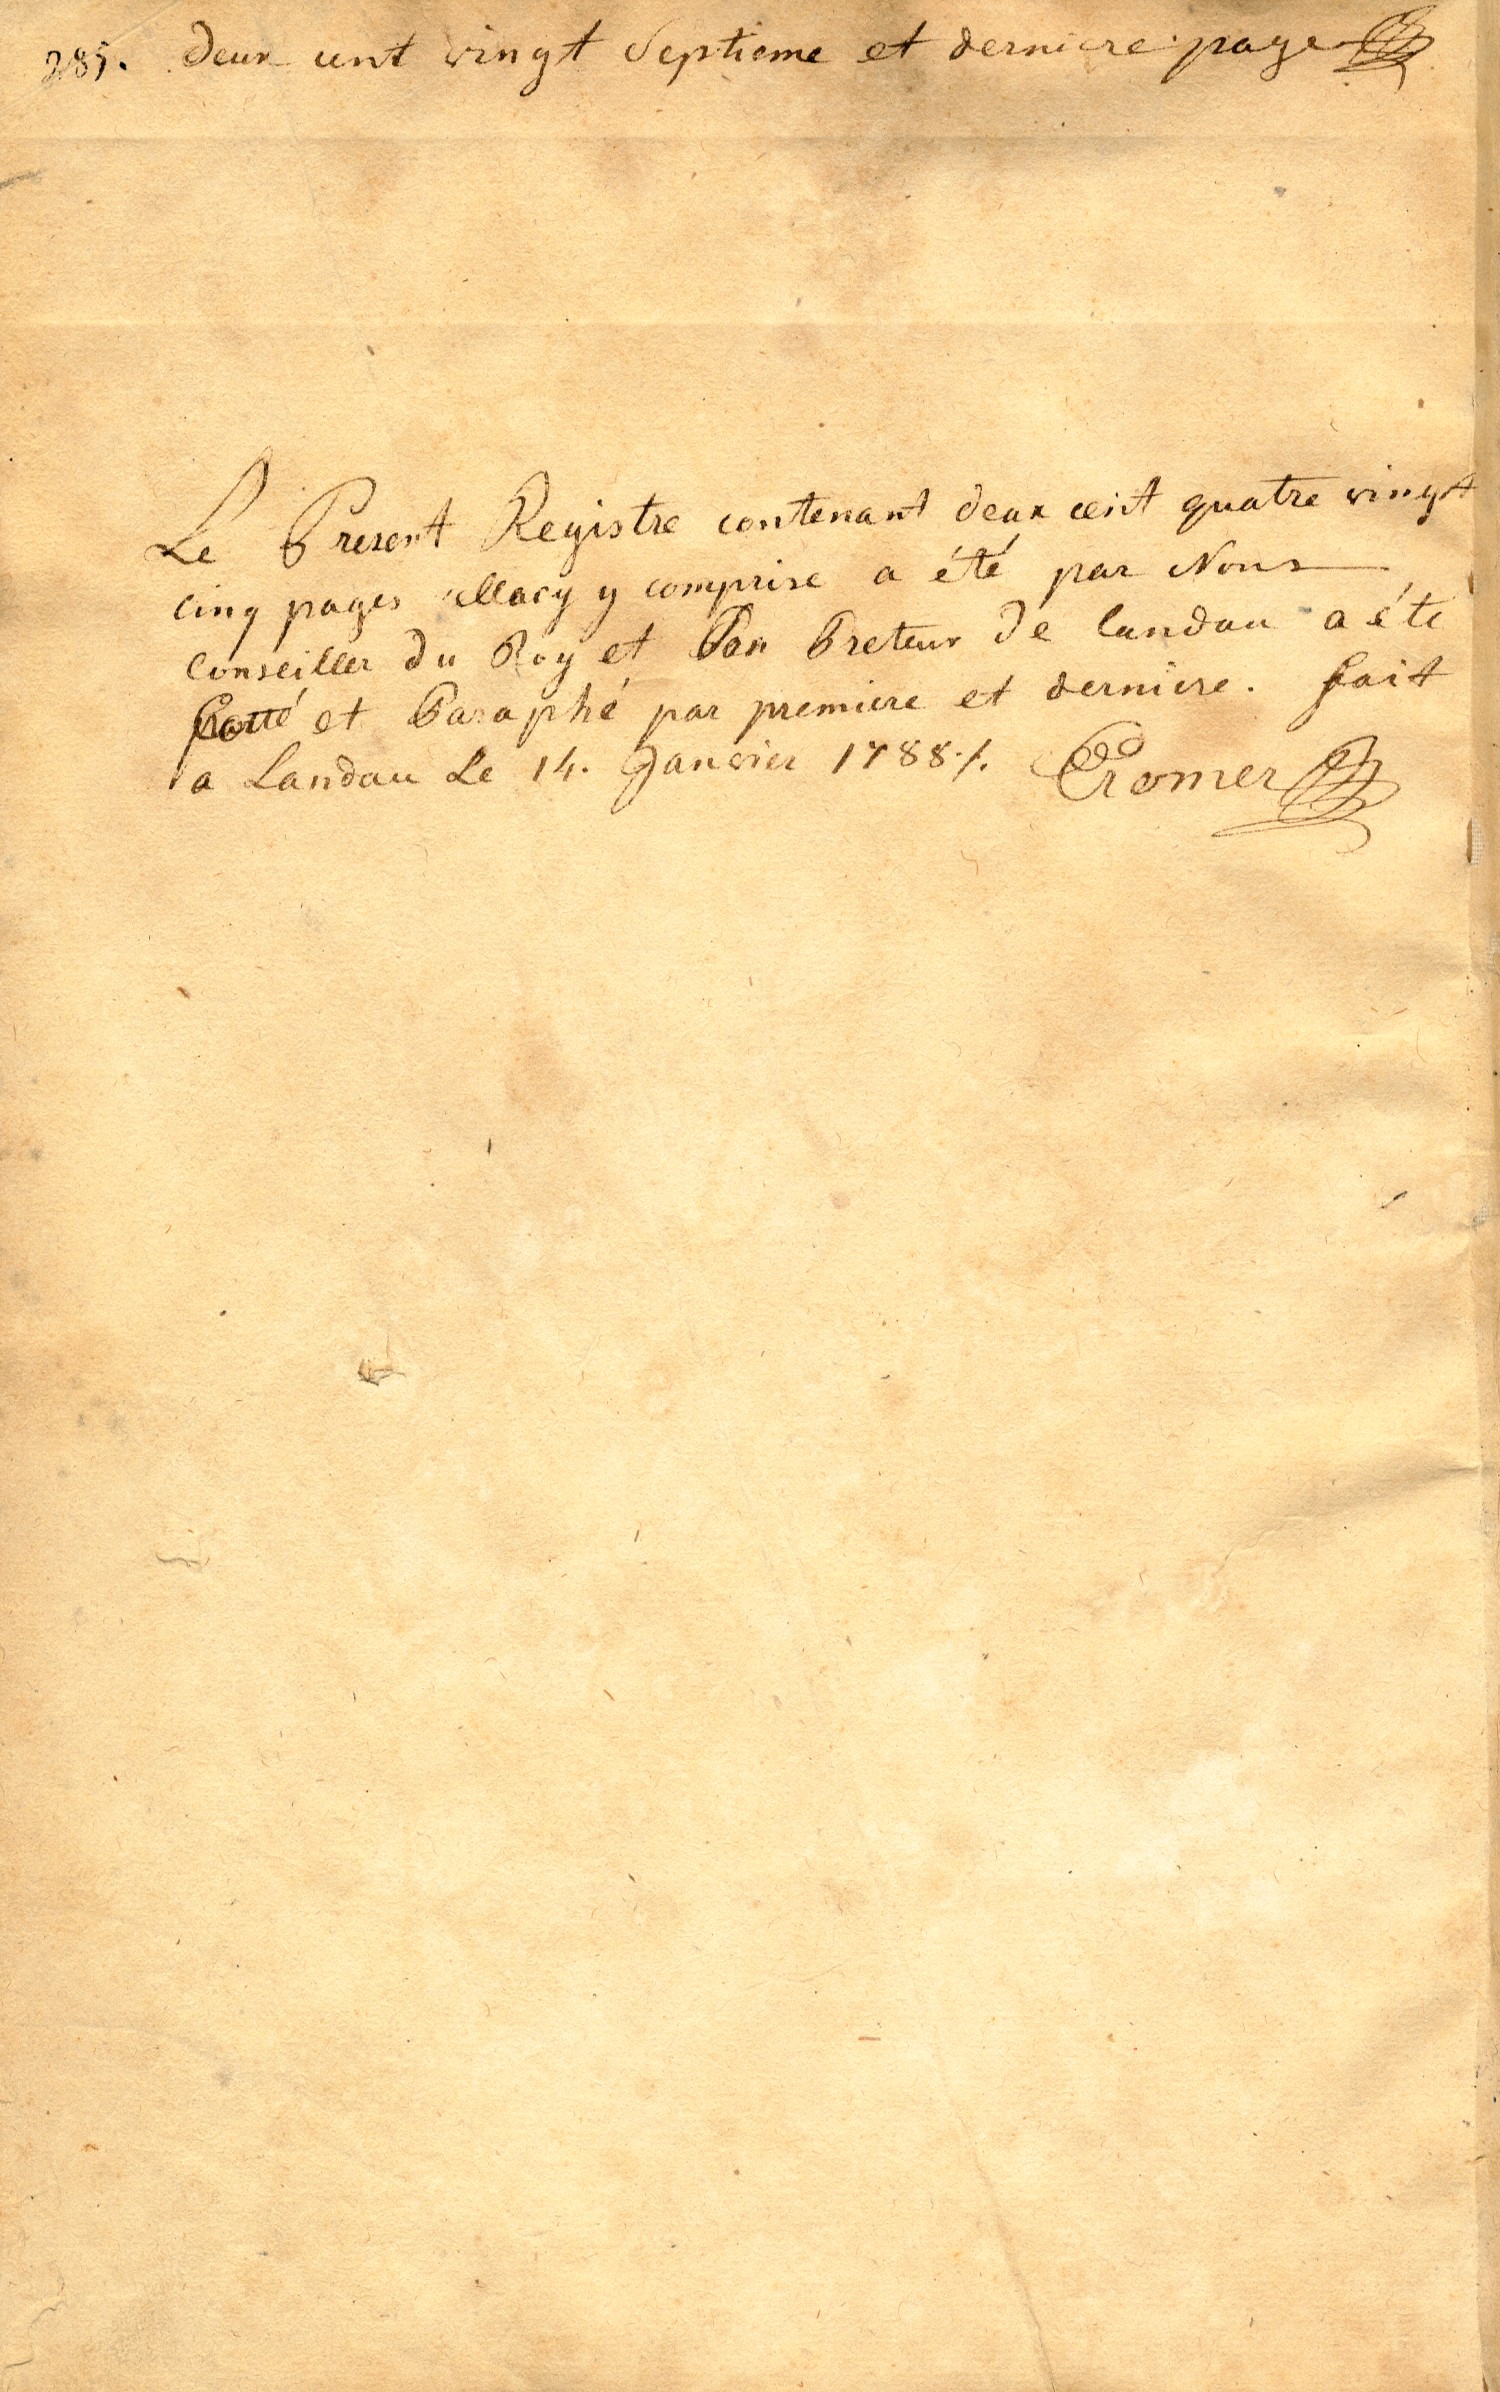 285. deux cent vingt Septieme et derniere page
Le Present Registre contenant deux cent quatre vingt
Cinq pages cellacy y comprise a été par Nous
Conseiller du Roy et Son Preteur de landau a été
Cotté et Paraphé par premiere et derniere. fait
a Landau Le 14. Janvier 1788./. Cromer